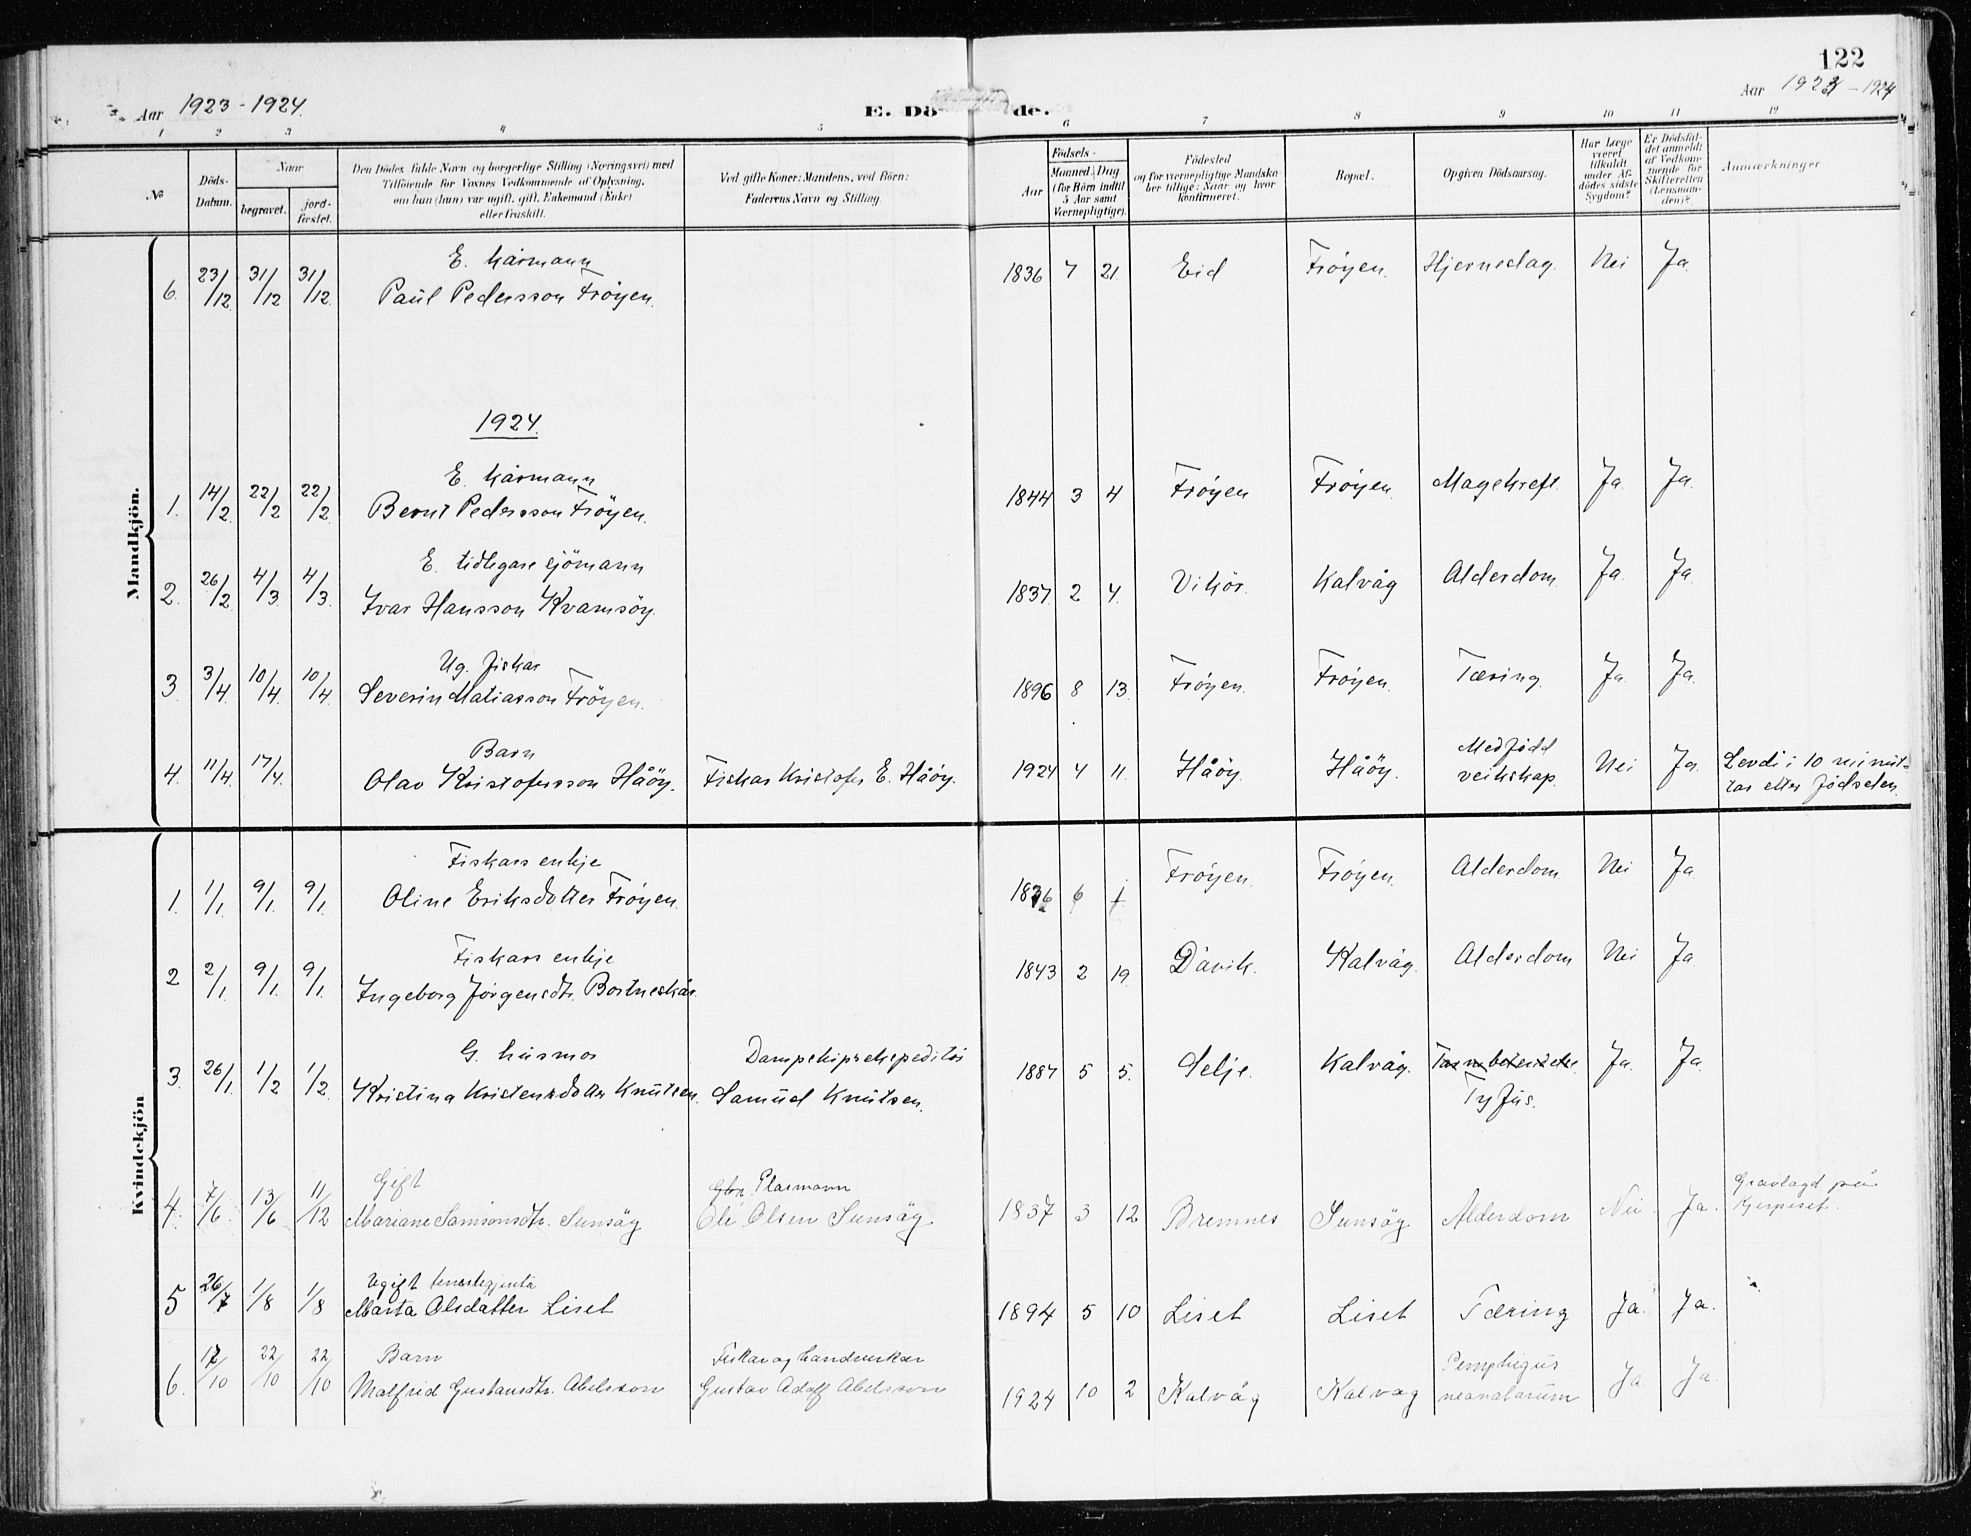 122
Aar 1923 - 1924.
E. Dö de.
Aar 1923 - 1924
1 2 3 4 5 6 7 8 9 10 11 12
№
Döds-Datum.
Naar
begravet.
jord-fæstet.
Den Dödes fulde Navn og borgerlige Stilling (Næringsvei) med
Tilföiende for Voxnes Vedkommende af Oplysning,
om han (hun) var ugift, gift, Enkemand (Enke)
eller fraskilt.
Ved gifte Koner: Mandens, ved Börn:
Faderens Navn og Stilling.
Födsels-
Aar
Maaned. Dag
(for Börn indtil
5 Aar samt
Værnepligtige).
Födested
og for værnepligtige Mandska-
ber tillige: Naar og hvor
konfirmeret.
Bopæl.
Opgiven Dödsaarsag.
Har Læge
været
tilkaldt
under Af-
dödes sidste
Sygdom?
Er Dödsfal-
det anmeldt
af Vedkom-
mende for
Skifteretten
(Lensman-
den)?
Anmærkninger
Mandkjön.
E. kårmann
6. 23/12 31/12 31/12. Paul Pedersson Fröyen. 1836 7 21. Eid Fröyen. Hjerneslag. Nei Ja.
1924.
E. kårmann
1. 14/2. 22/2 22/2. Bernt Pedersson Fröyen. 1844 3 4 Fröyen Fröyen. Magekreft. Ja. Ja.
E. tidlegare sjömann
2. 26/2 4/3. 4/3. Ivar Hansson Kvamsöy. 1837. 2 4. Vikör. Kalvåg Alderdom. Ja. Ja.
Ug. fiskar
3 3/4 10/4. 10/4. Severin Matiasson Fröyen. 1896 8 13. Fröyen. Fröyen. Tæring. Ja. Ja.
Barn
4. 11/4. 17/4. Olav Kristofersson Håöy. Fiskar Kristofer E. Håöy. 1924 4 11. Håöy. Håöy. Medfödd
veikskap. Nei Ja. Levdi i 10 minut-
tar etter födselen.
Kvindekjön
Fiskars enkje
1. 1/1. 9/1. 9/1. Oline Eriksdotter Fröyen. 6 Fröyen. Fröyen. Alderdom. Nei Ja.
Fiskars enkje
2 2/1. 9/1. 9/1. Ingeborg Jörgensdtr. Bortneskår. 1843 2 19. Davik. Kalvåg. Alderdom Nei Ja
G. husmor
3. 26/1. 1/2 1/2. Kristina Kristensdotter Knutsen. Dampskipsekspeditör
Samuel Knutsen. 1887 5 5. Selje. Kalvåg. Ja. Ja.
Tyfus.
Gift
4. 7/6 13/6 11/12 Mariane Samsonsdtr. Sunsöy Plasmann
Ole Olsen Sunsöy 1837 3 12 Bremnes Sunsöy Alderdom Nei Ja. Gravlagd på
Kjerpeset.
Ugift tenestegjenta
5 26/7 1/8 1/8 Marta Olsdatter Liset 1894 5 10 Liset Liset Tæring Ja. Ja.
Barn
6. 12/10 22/10 22/10 Malfrid Gustavsdtr. Abelsson Fiskar og handverkar
Gustav Adolf Abelsson 1924 10 2 Kalvåg Kalvag Pemphigus
neonatorum Ja. Ja.